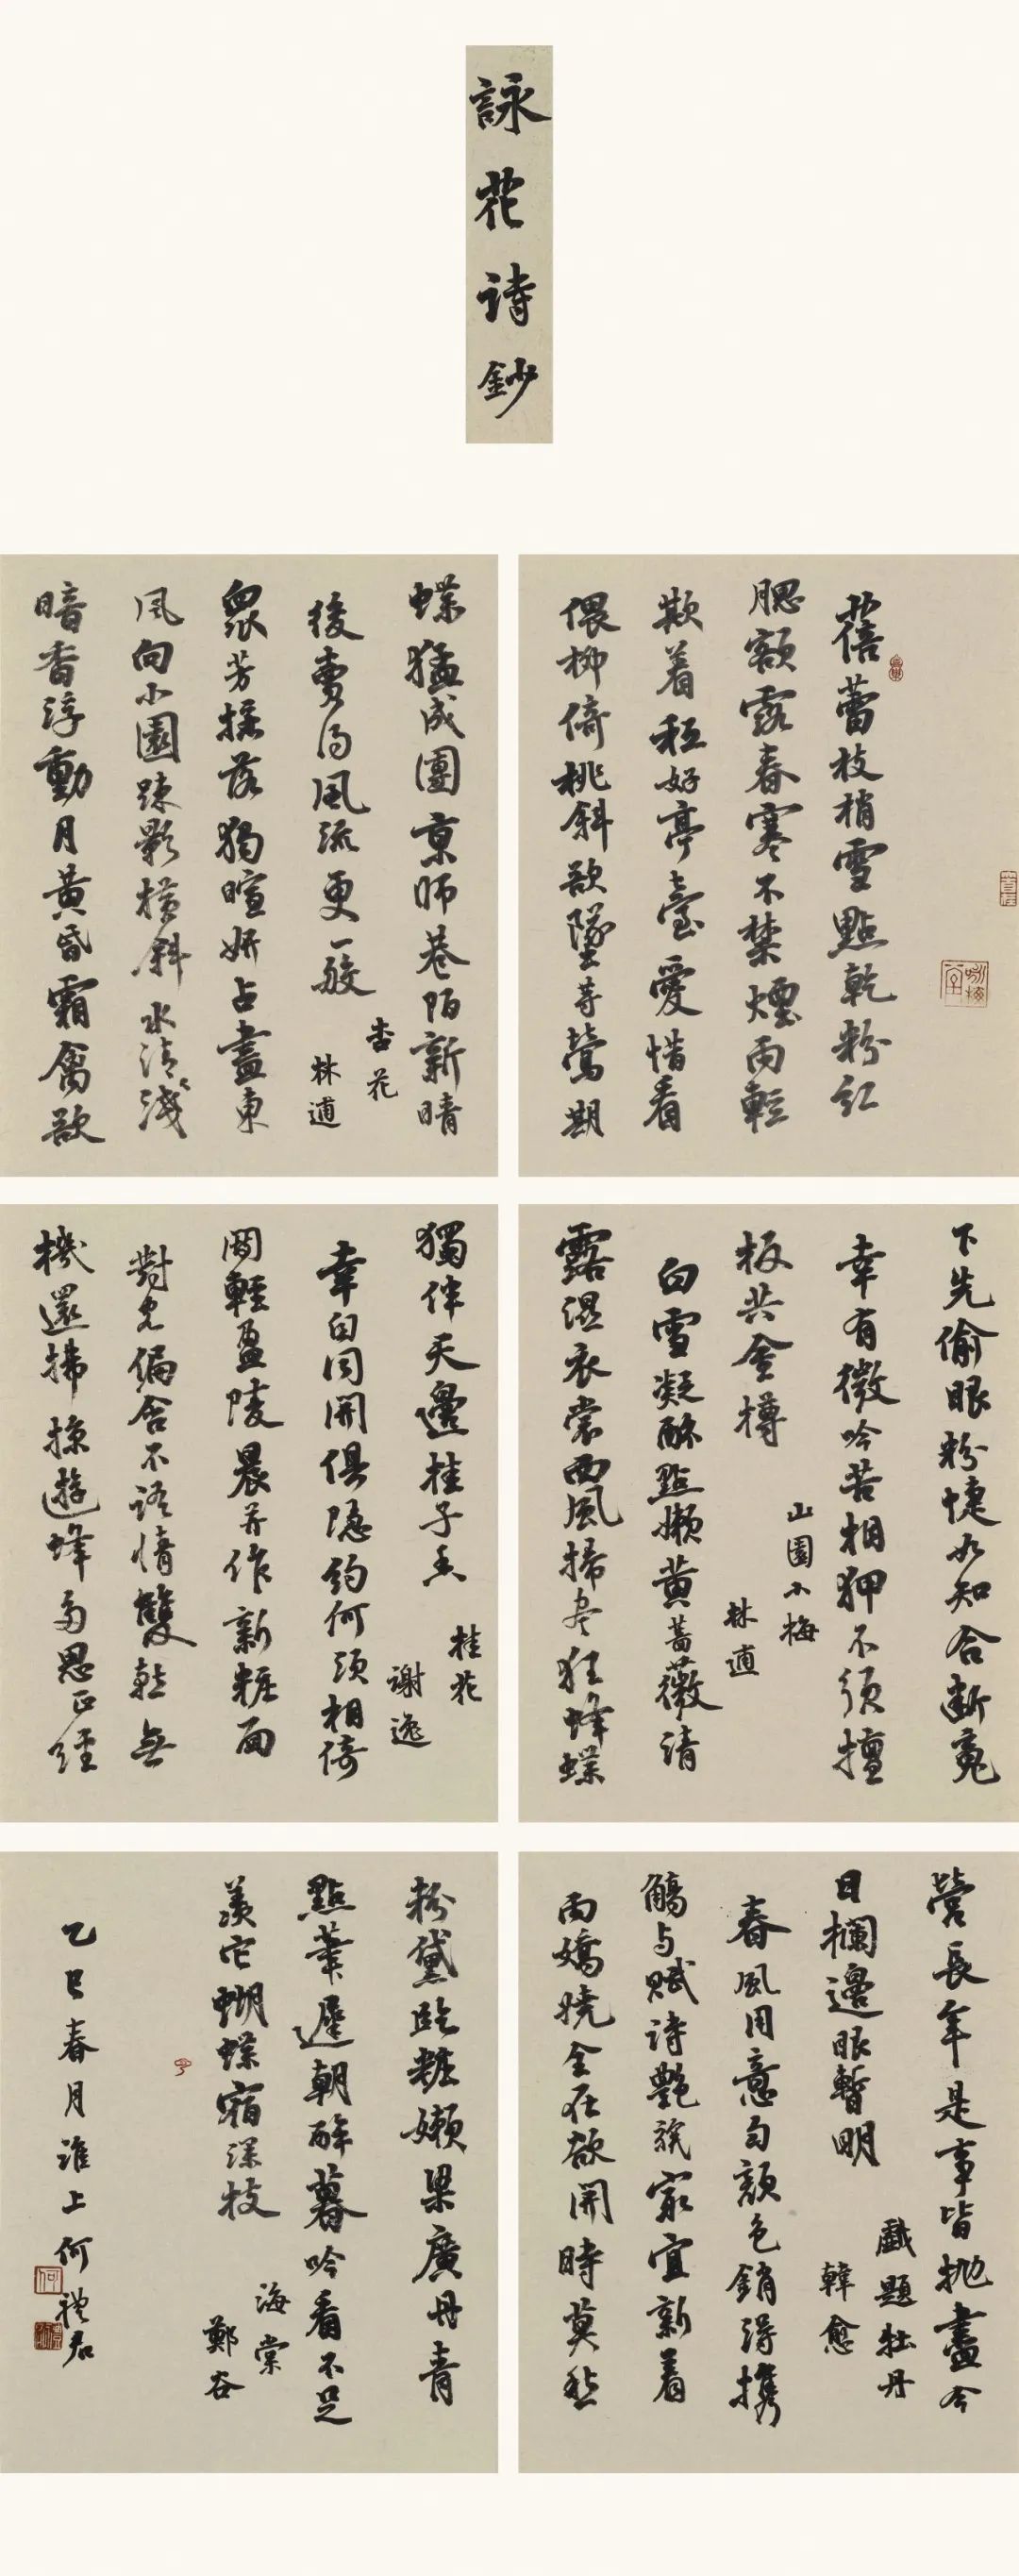 詠花诗鈔
蓓蕾枝梢雪點乾粉紅
腮額露春寒不禁煙雨輕
欺着秪好亭臺愛惜看
偎柳倚桃斜欲墜等鶯期
蝶猛成團京師巷陌新晴
後賣得風流更一般
杏花
林逋
衆芳摇落獨暄妍占盡東
風向小園疎影横斜水清淺
暗香浮動月黄昏霜禽欲
下先偷眼粉蜨如知合断魂
幸有微吟苦相狎不须擅
板共金樽
山園小梅
林逋
白雪凝酥點嫩黄蔷薇清
露濕衣裳西風掃尽狂蜂蝶
獨伴天邊桂子香
桂花
謝逸
幸自同開俱隐约何须相倚
閗輕盈陵晨并作新粧面
對客偏含不语情雙鷰無
機還拂掠遊蜂多思正經
營長年是事皆抛盡今
日欄邊眼暫明
戲題牡丹
韓愈
春風用意勻颜色銷得携
觴与赋诗艷説家宜新着
雨嬌嬈全在欲開時莫愁
粉黛臨粧嬾梁廣丹青
點筆遲朝醉暮吟看不足
羡它蝴蝶宿深枝
海棠
鄭谷
乙巳春月淮上何禮君